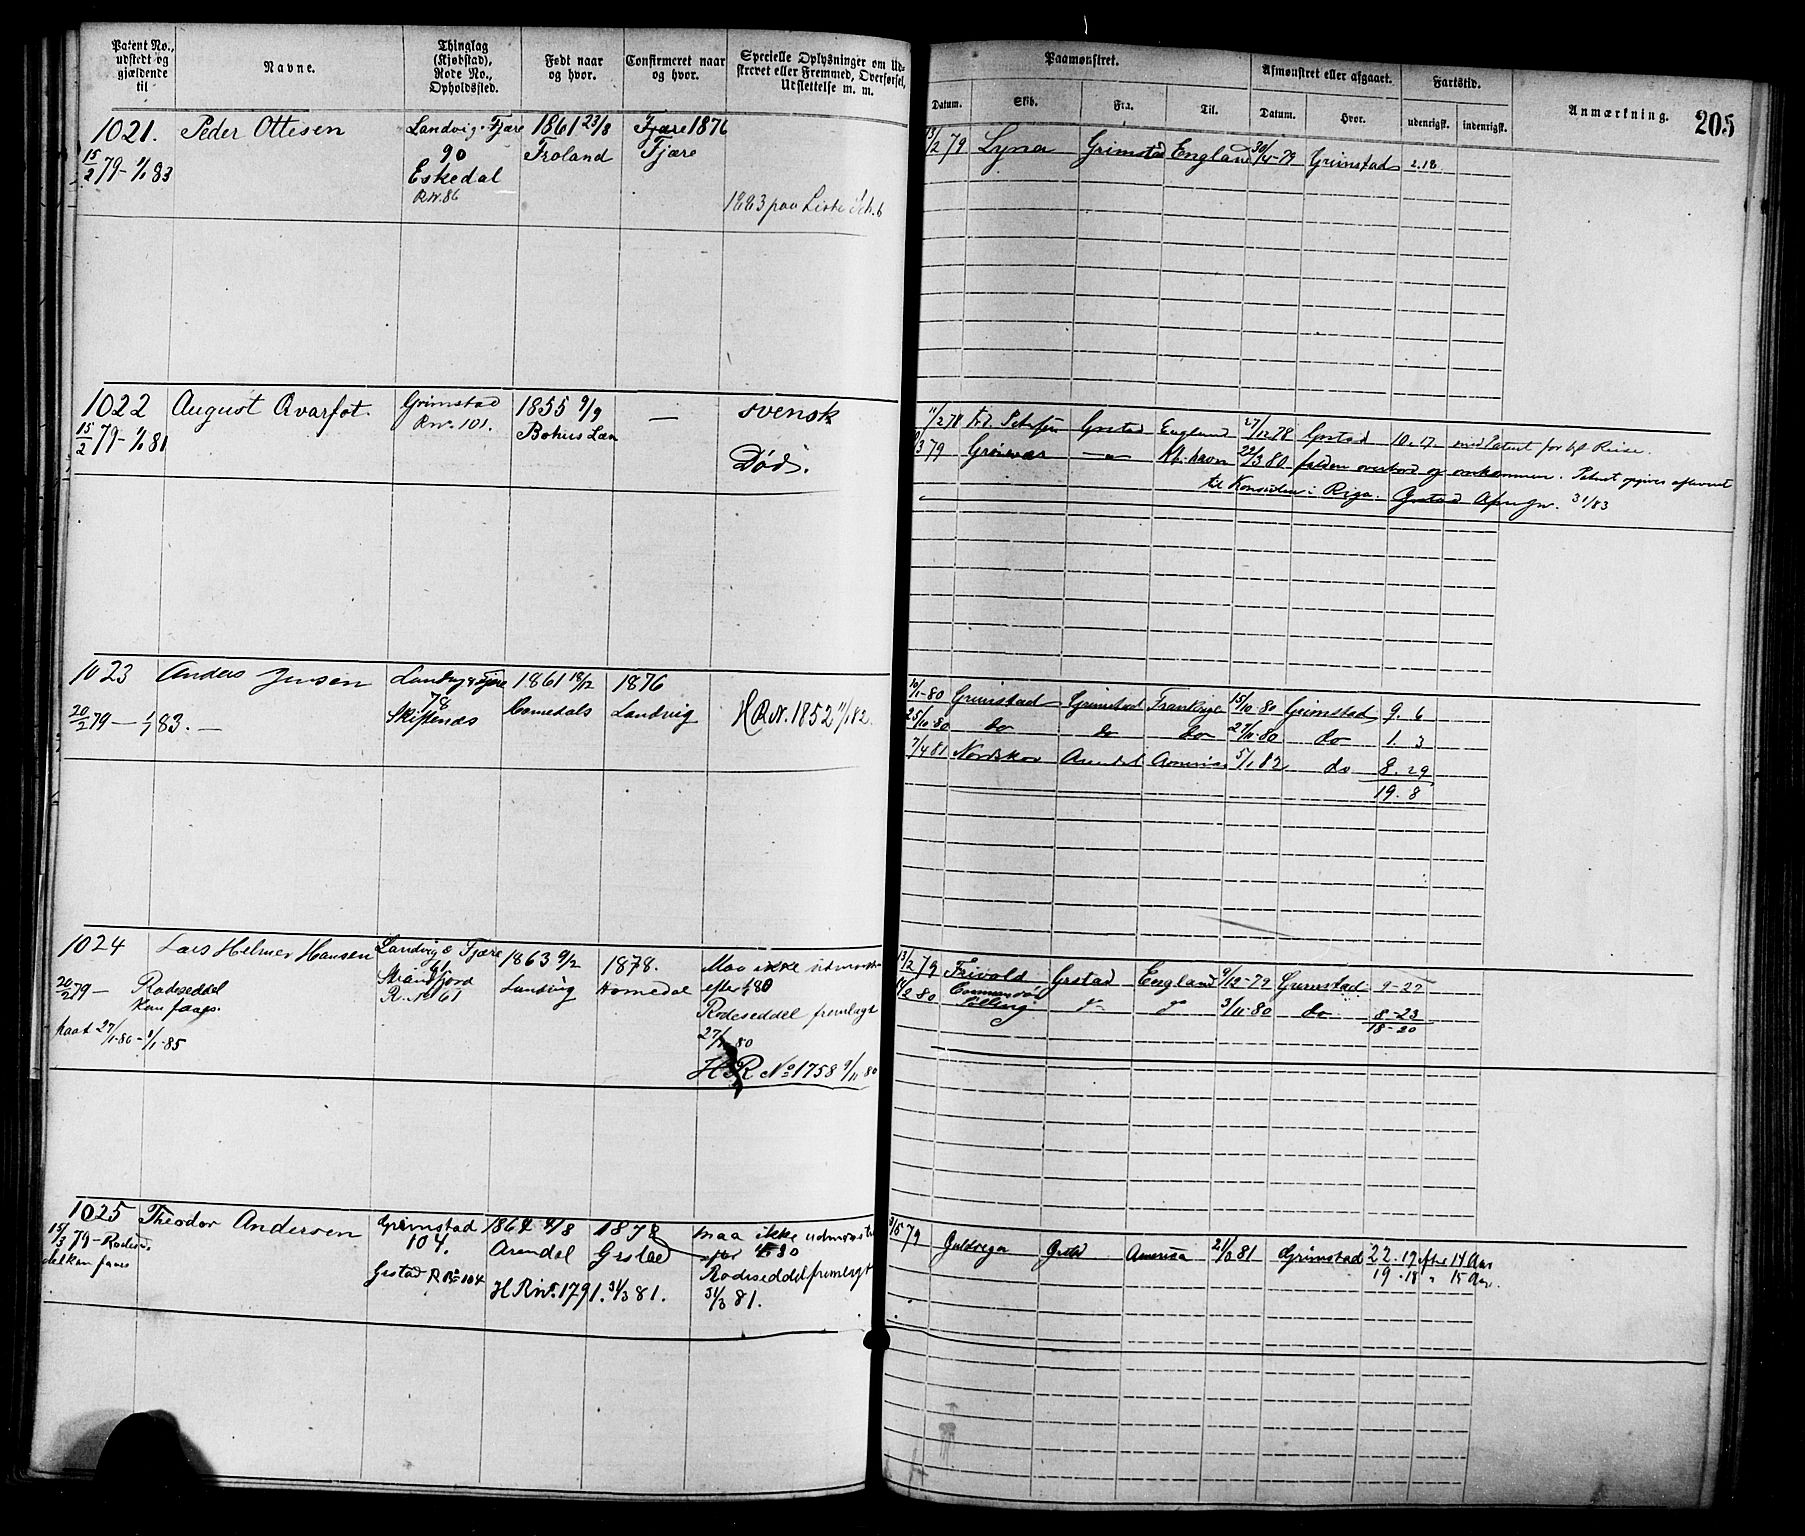 Patent No., udstedt og gjældende til
Navne.
Thinglag (Kjøbstad), Rode No., Opholdssted.
Født naar og hvor.
Confirmeret naar og hvor.
Specielle Oplysninger om Udskrevet eller Fremmed, Overførsel, Udslettelse m. m.
Paamønstret.
Datum.
Skib.
Fra.
Til.
Afmønstret eller afgaaet.
Datum.
Hvor.
Fartstid.
udenrigsk.
indenrigsk.
Anmærkning.
205
1021. Peder Ottesen
15/2 79 - 1/1 83
Landvig & Fjære
90
Eskedal
R.No. 86
1861 23/8
Froland
Fjære 1876
Fjære
1883 paa Liste
13/2 79 Lyna Grimstad England 30/4-79 Grimstad 2.18
1022 August Qvarfot.
15/2 79 - 1/1 81
Grimstad
R.No. 101.
1855 9/9
Bohus Læn
—
svensk
Død.
11/2 78 Grstad England 27/12 78 Grstad 10.17 med Patent for Reise.
3 79 Grønvær —"— 22/3 80 falden overbord og omkommen. Patent opgives afleveret
til Konsulen i Riga. Grstad 3/1 83
1023 Anders Jensen
20/2 79 — 1/1 83. —
Landvig & Fjære
78
Skiftenæs
1861 18/12
Homedals
1876
Landvig
H R No. 1852 11/1 82.
10/1-80 Grimstad Grimstad Frankrige 15/10-80 Grimstad 9. 6
25/10-80 do do do 27/11-80 do 1. 3
7/4 81 Nordskov Arendal America 5/1 82 do 8. 29
19. 8
1024 Lars Helmer Hansen
20/2 79 — Rodeseddel
kan faaes.
haat 27/1-80 - 1/1-85
Landvig & Fjære
61
Strandfjord
R.No 61
1863 9/2
Landvig
1878.
Homedal
Maa ikke udmønstr
efter 1/1 80
Rodeseddel fremlagt
27/1 80
H R No 1758 9/11 80
13/2 79 Frivold Grstad England 9/12-79 Grimstad 9-27
2 80 Commandør
Polling 3/11-80 do 8-23
18-20
1025 Theodor Andersen
15/3 79 - Rodesed
del kan faaes
Grimstad
104.
Grstad R No 104
1864 4/8
Arendal
1878
Grstad
H R No. 1791. 31/3 81.
maa ikke udmønstr
efter 80
Rodeseddel fremlagt
31/3 81.
79 Guldregn Grstd America 21/3 81 Grimstad 22. 19 efter 14 Aar
19 - 18 " 15 Aar.